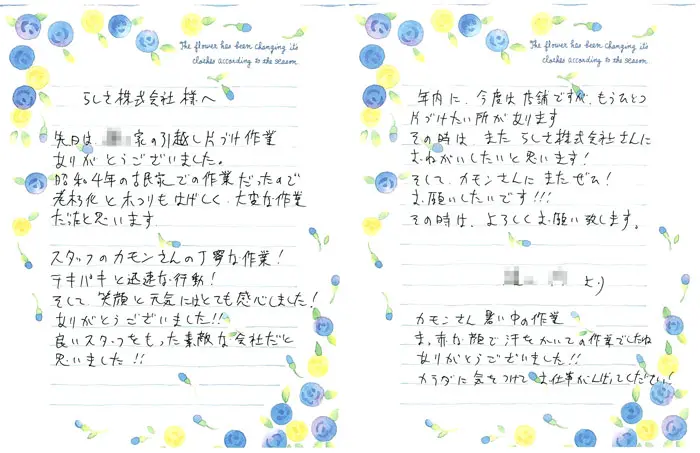 The flower has been changing it's
clothes according to the season.
らして株式会社様へ
先日は 家の引越し片づけ作業
ありがとうございました。
昭和4年の古民家での作業だったので
老朽化とホコリもはげしく、大変な作業
だったと思います
スタッフのカモンさんの丁寧な作業!
テキパキと迅速な行動!
そして、笑顔と元気にはとても感心しました!
ありがとうございました!!
良いスタッフをもった素敵な会社だと
思いました!!
The flower has been changing it's
clothes according to the season.
年内に、今度は店舗ですが、もうひとつ
片づけたい所があります
その時は、また らして株式会社さんに
おねがいしたいと思います!
そして、カモンさんにまたぜひ!
お願いしたいです!!!
その時は、よろしくお願い致します。
より
カモンさん 暑い中の作業
ま,赤な顔で汗をかいての作業でしたね
ありがとうございました!!
カラダに気をつけて お仕事がんばってください!